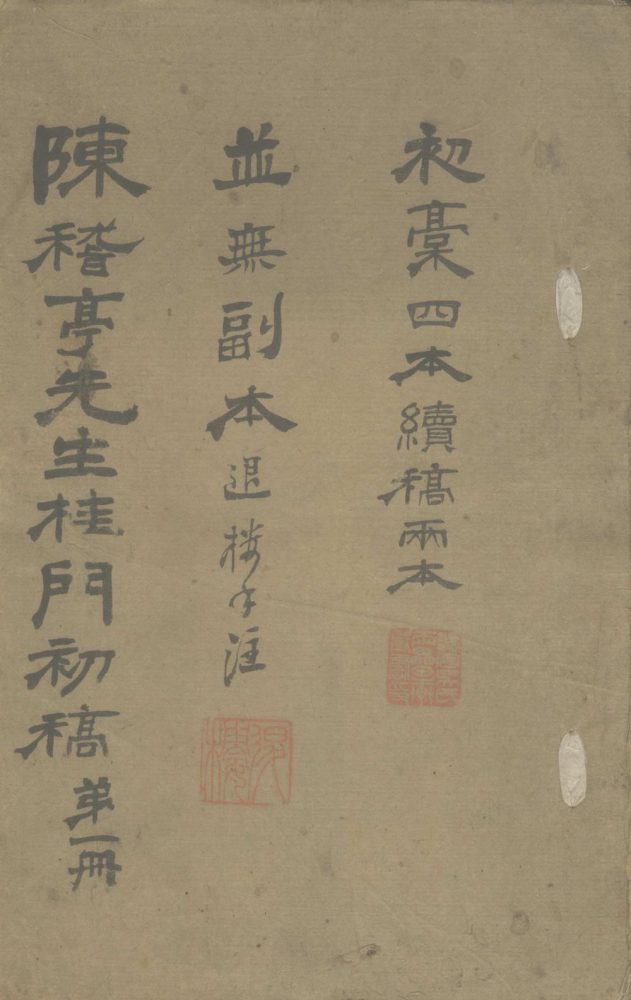 初稾四本續稿兩本
並無副本退樓手注
陳稽亭先生桂門初稿第一冊
退樓